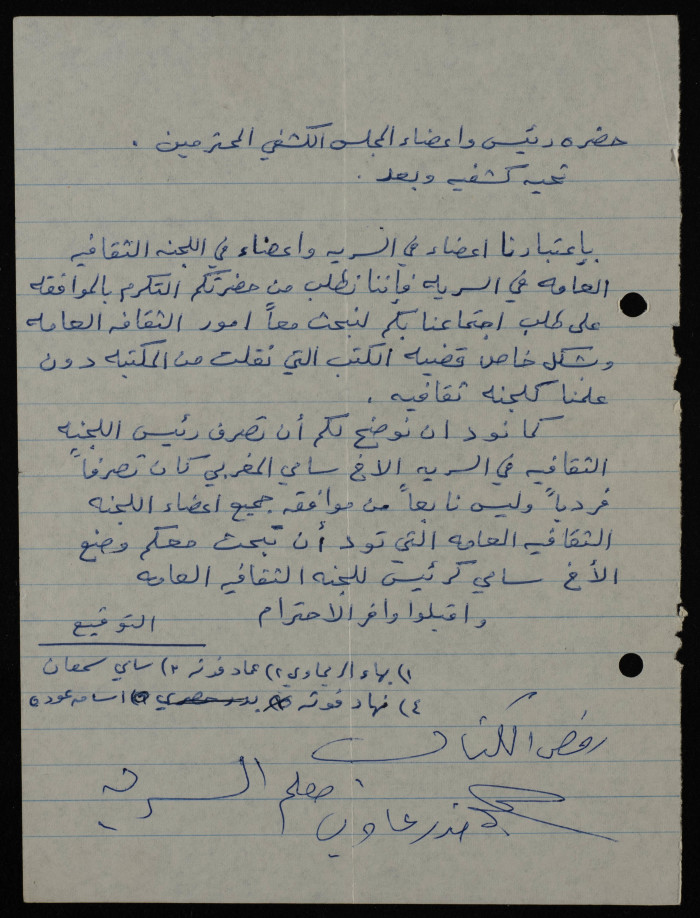 حضره رئيس واعضاء المجلس الكشفي المحترمين .
تحيه كشفيه وبعد .
بإعتبارنا اعضاء في السريه واعضاء في اللجنه الثقافيه
العامه في السريه فإننا نطلب من حضرتكم التكرم بالموافقه
على طلب اجتماعنا بكم لنبحث معاً امور الثقافه العامه
وبشكل خاص قضيه الكتب التي نقلت من المكتبه دون
علمنا كلجنه ثقافيه .
كما نود ان نوضح لكم أن تصرف رئيس اللجنه
الثقافيه في السريه الاخ سامي المغربي كان تصرفاً
فردياً وليس نابعاً من موافقه جميع اعضاء اللجنه
الثقافيه العامه التي تود أن تبحث معكم وضع
الأخ سامي كرئيس للجنه الثقافيه العامه
واقبلوا وافر الاحترام
التوقيع
١) بهاء الريماوي ٢) عماد فوته ٣) سامي سمعان
٤) نهاد فوته ٥) اسامه عوده
رفض الكتاب
معلم السريه